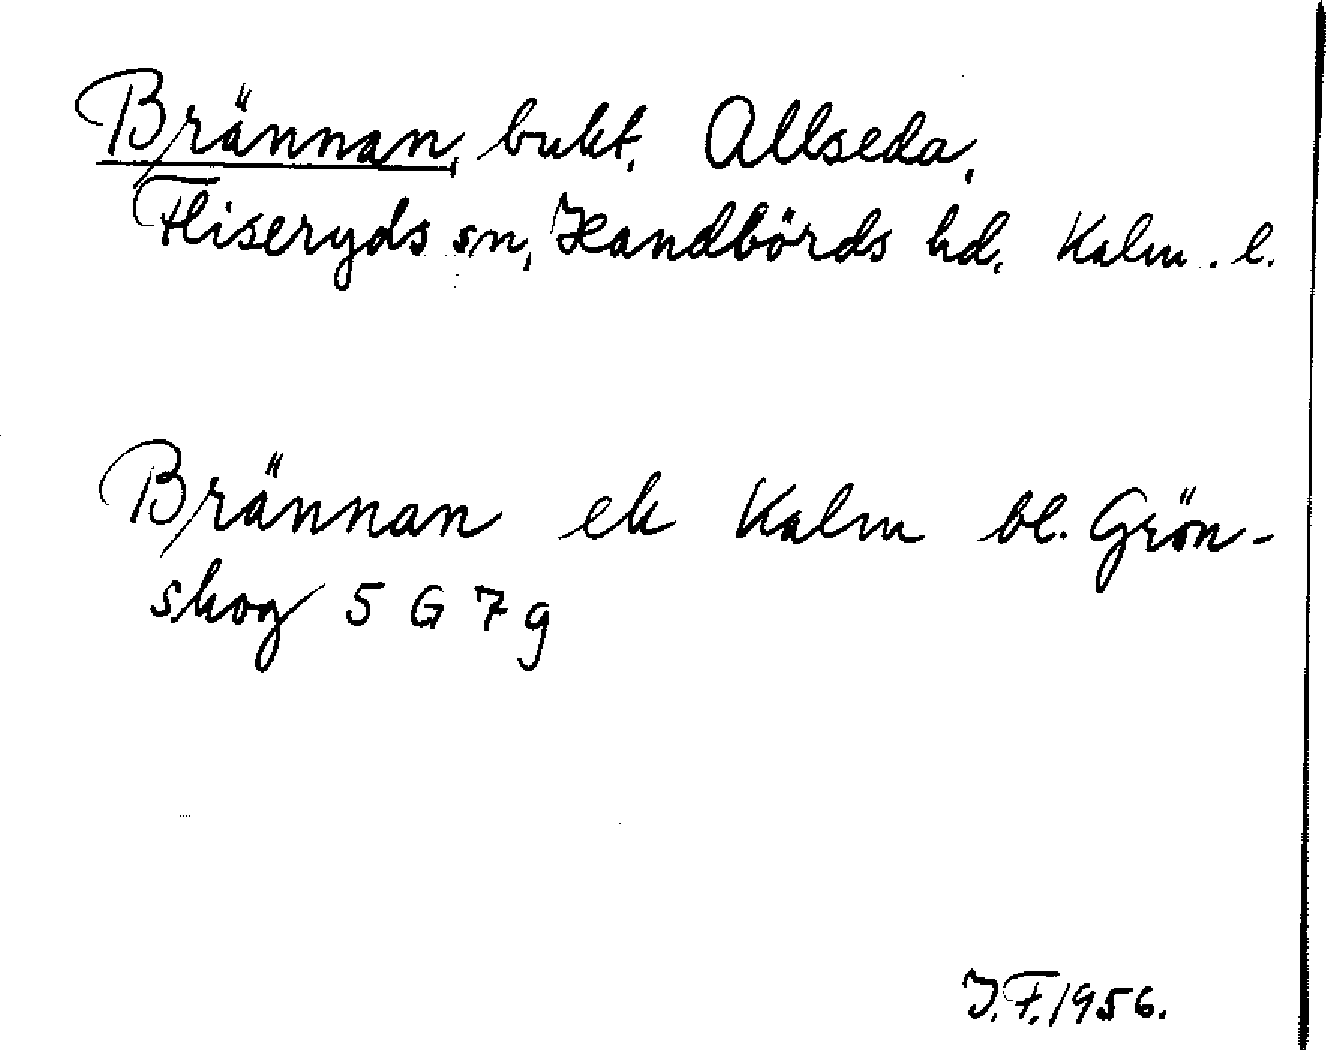 Brännan, bukt, Allseda,
Fliseryds sn, Handbörds hd, Kalm. l.
Brännan ek Kalm bl. Grön-
skog 5 G 7 g
J.F. 1956.